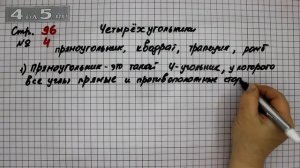 4 ДО 5
Стр. 96 Четырёхугольники
№ 4
прямоугольник, квадрат, трапеция, ромб
1) Прямоугольник - это такой 4-угольник, у которого
все углы прямые и противоположные стор